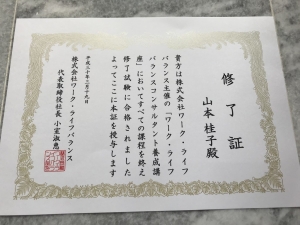 修了証
山本桂子殿
貴方は株式会社ワーク・ライフ
バランス主催の「ワーク・ライフ
バランスコンサルタント養成講
座」においてすべての課程を終え
修了試験に合格されました
よってここに本証を授与します
平成三十年三月十九日
株式会社ワーク・ライフバランス
代表取締役社長 小室淑恵